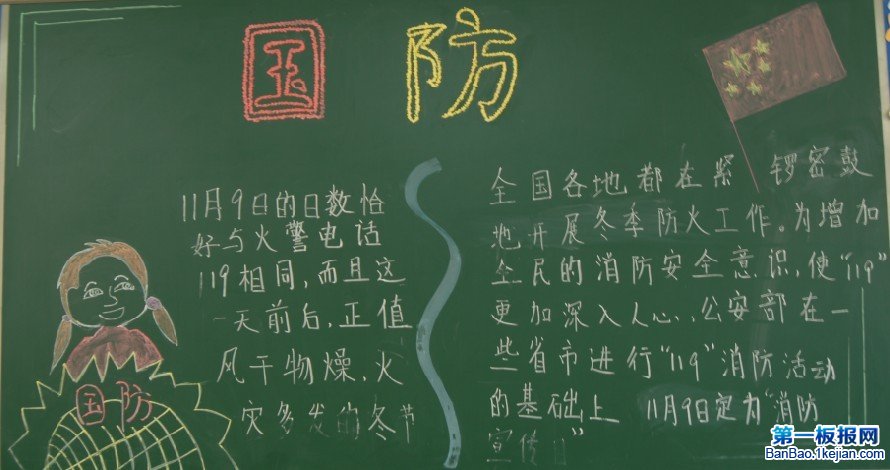 国防
11月9日的日数恰
好与火警电话
119相同,而且这
一天前后,正值
风干物燥,火
灾多发的冬节
全国各地都在紧 锣密鼓
地开展冬季防火工作。为增加
全民的消防安全意识,使“119”
更加深入人心,公安部在一
些省市进行“119”消防活动
的基础上 11月9日定为“消防
宣传日”
国防
第一板报网
BanBao.1kejian.com